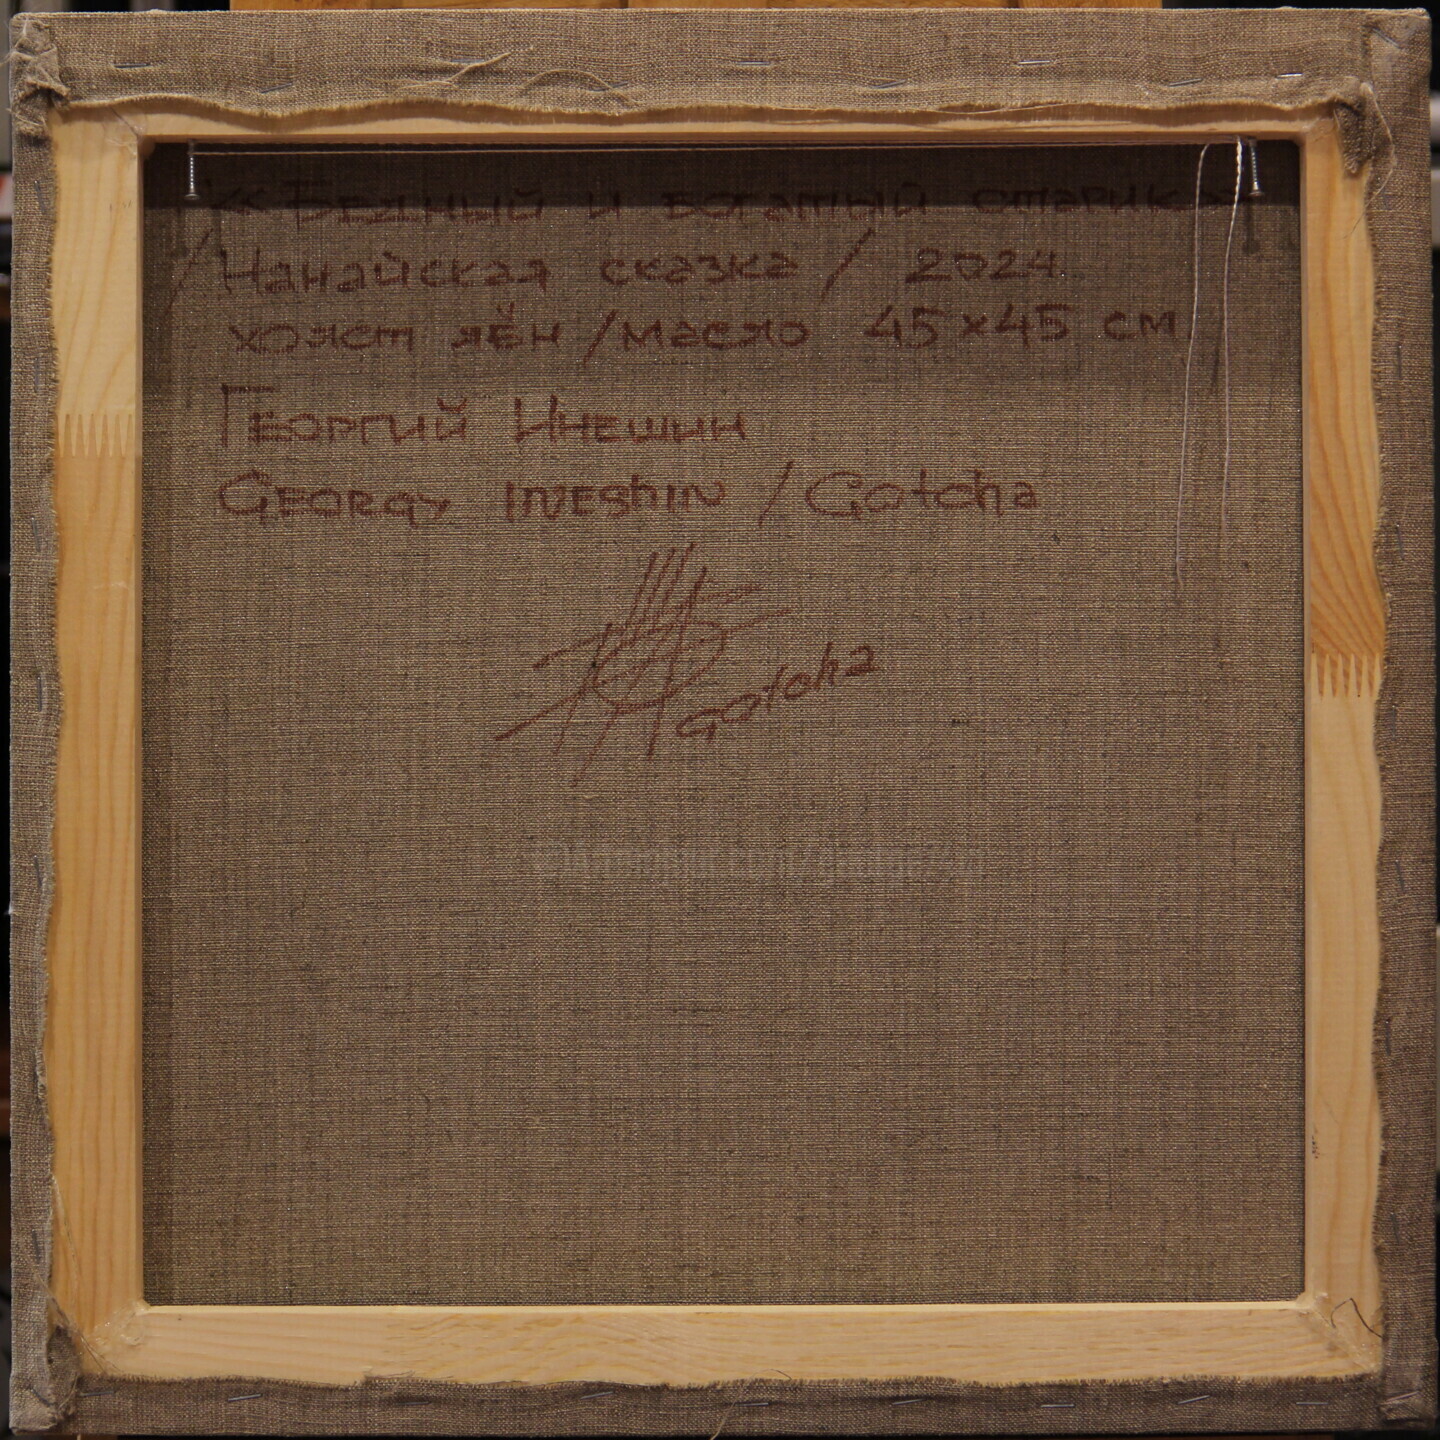 «Бедный и богатый старик»
/Нанайская сказка/ 2024
холст лён /масло 45×45 см
Георгий Инешин
Georgy Ineshin /Gotcha
Gotcha